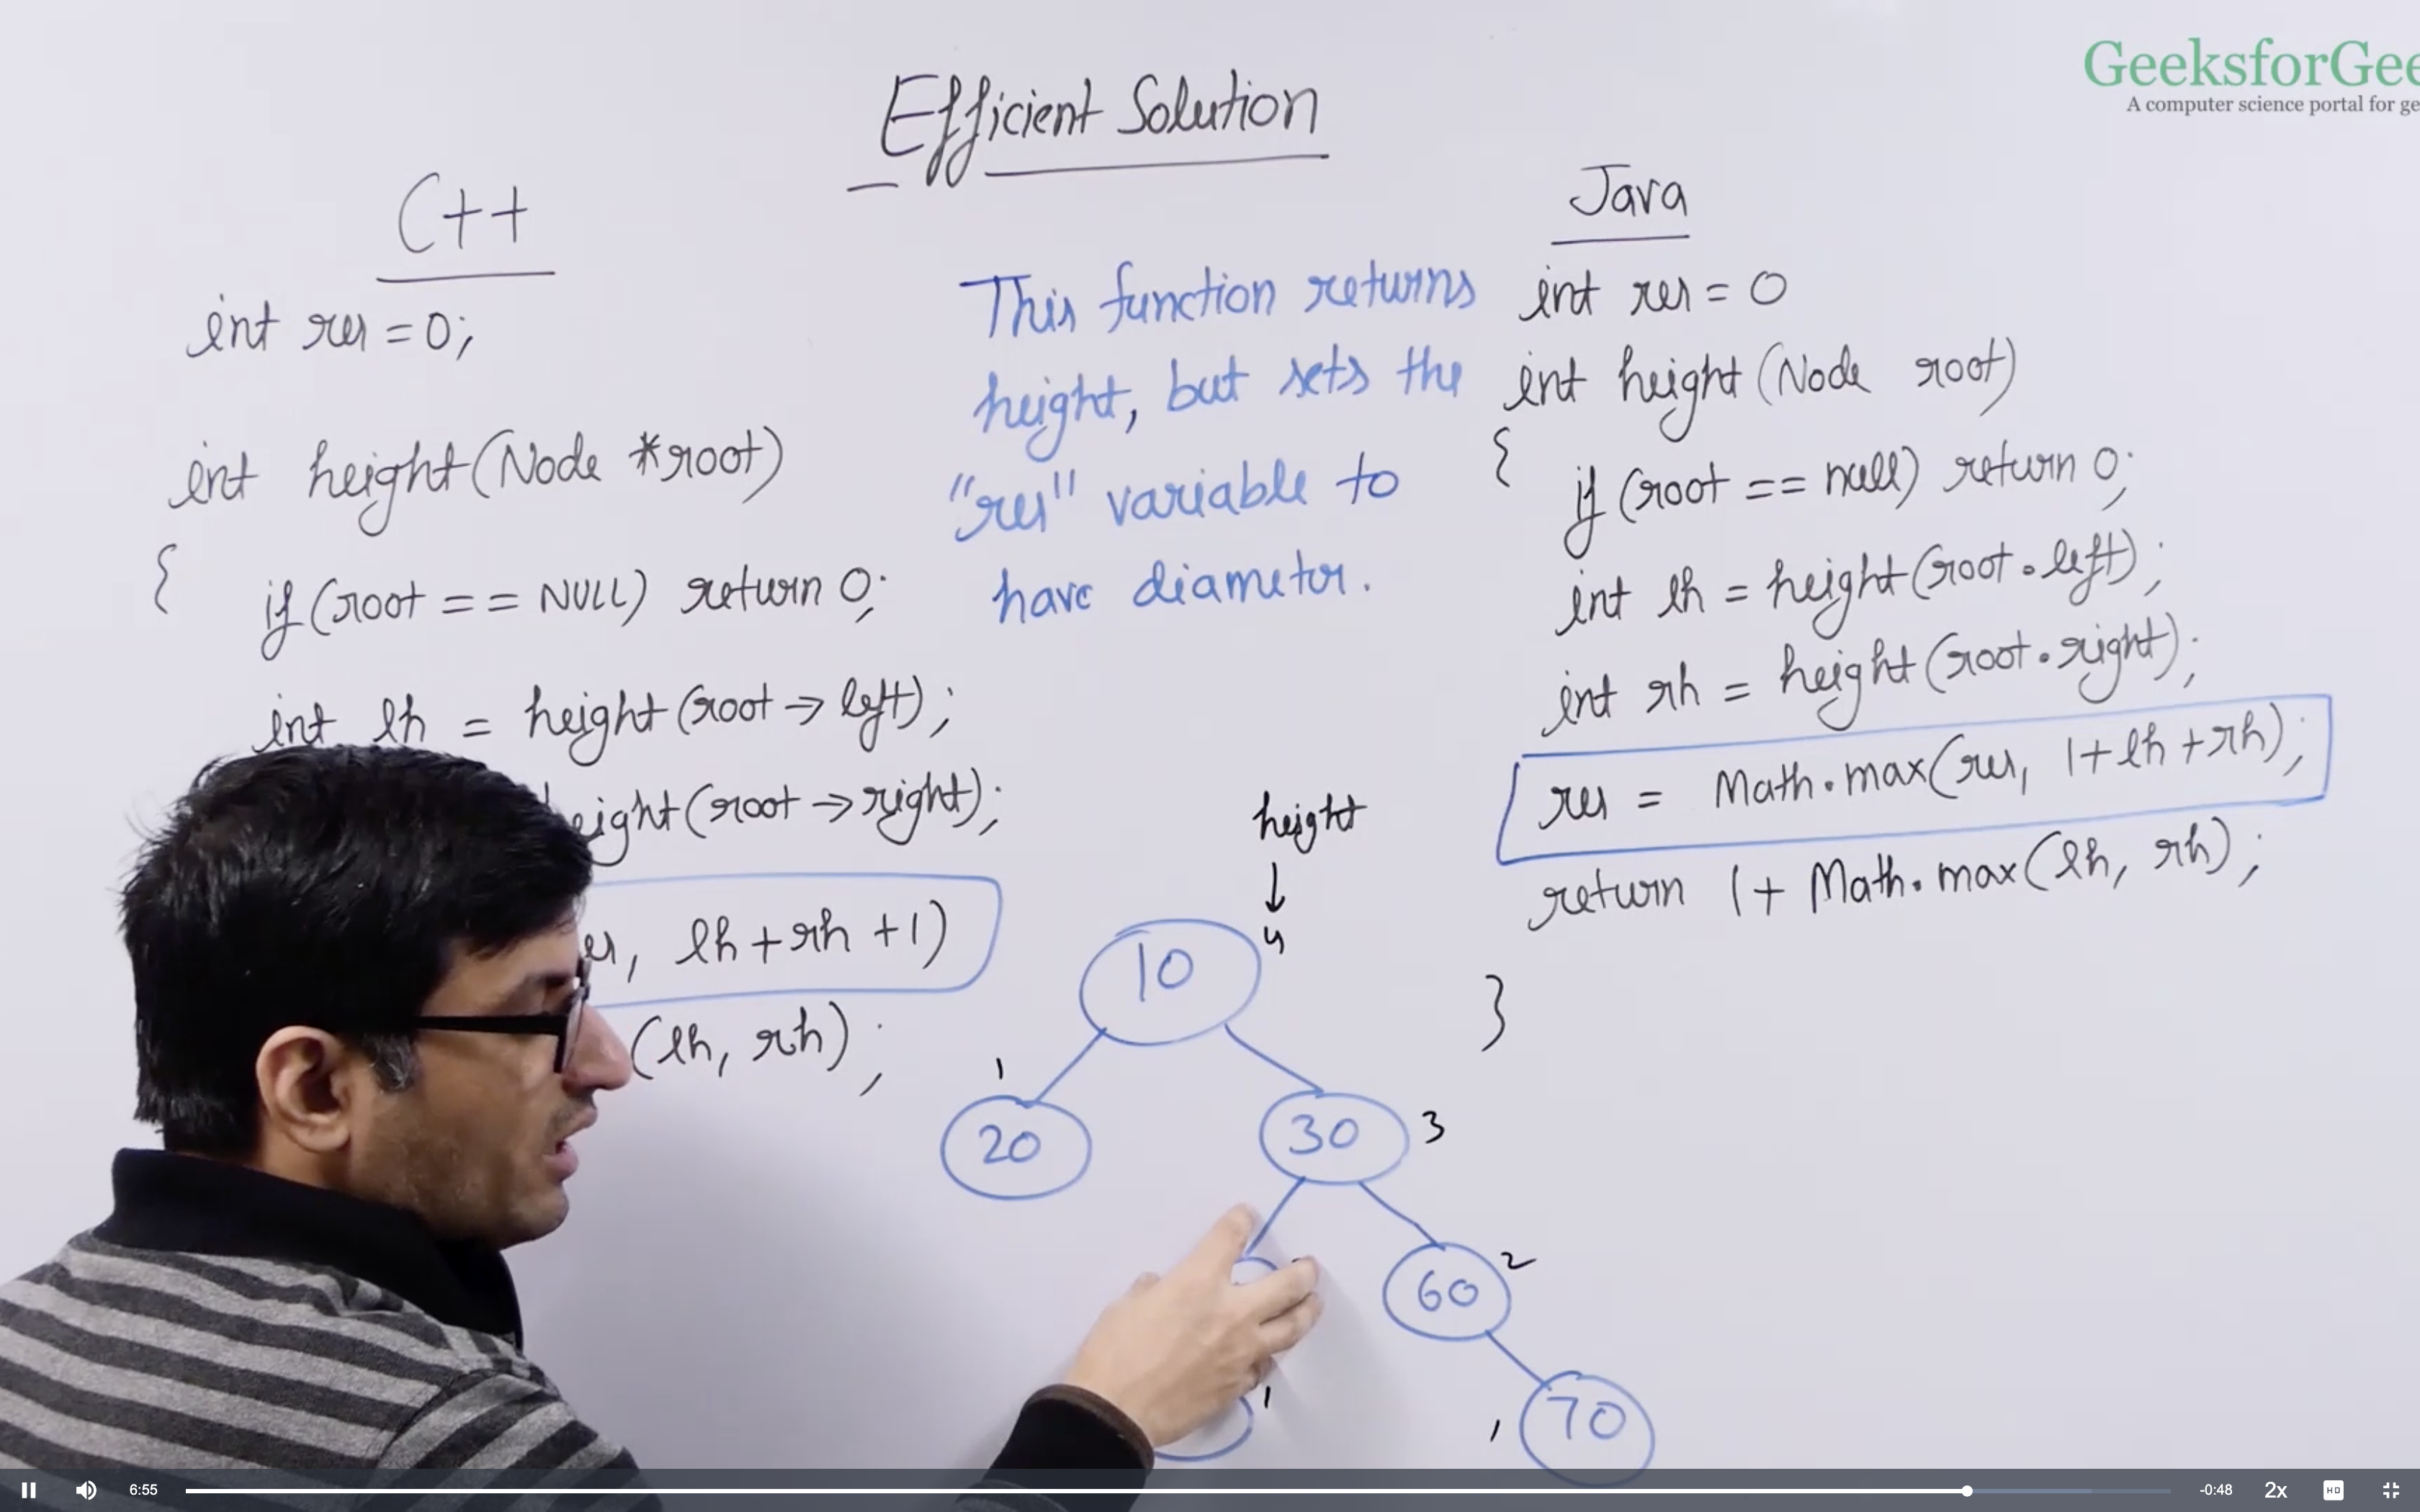 GeeksforGee
A computer science portal for ge
Efficient Solution
C++
int res = 0;
int height(Node *root)
{
if(root == NULL) return 0;
int lh = height(root → left);
eight(root → right);
lh + rh + 1)
(lh, rh);
This function returns
height, but sets the
"res" variable to
have diameter.
Java
int res = 0
int height(Node root)
{
if(root == null) return 0;
int lh = height(root.left);
int rh = height(root.right);
res = Math.max(res, 1+lh+rh);
return 1+ Math.max(lh, rh);
}
height
↓
4
10
1
20
30
3
60
2
1
1
70
6:55
-0:48
2x
HD